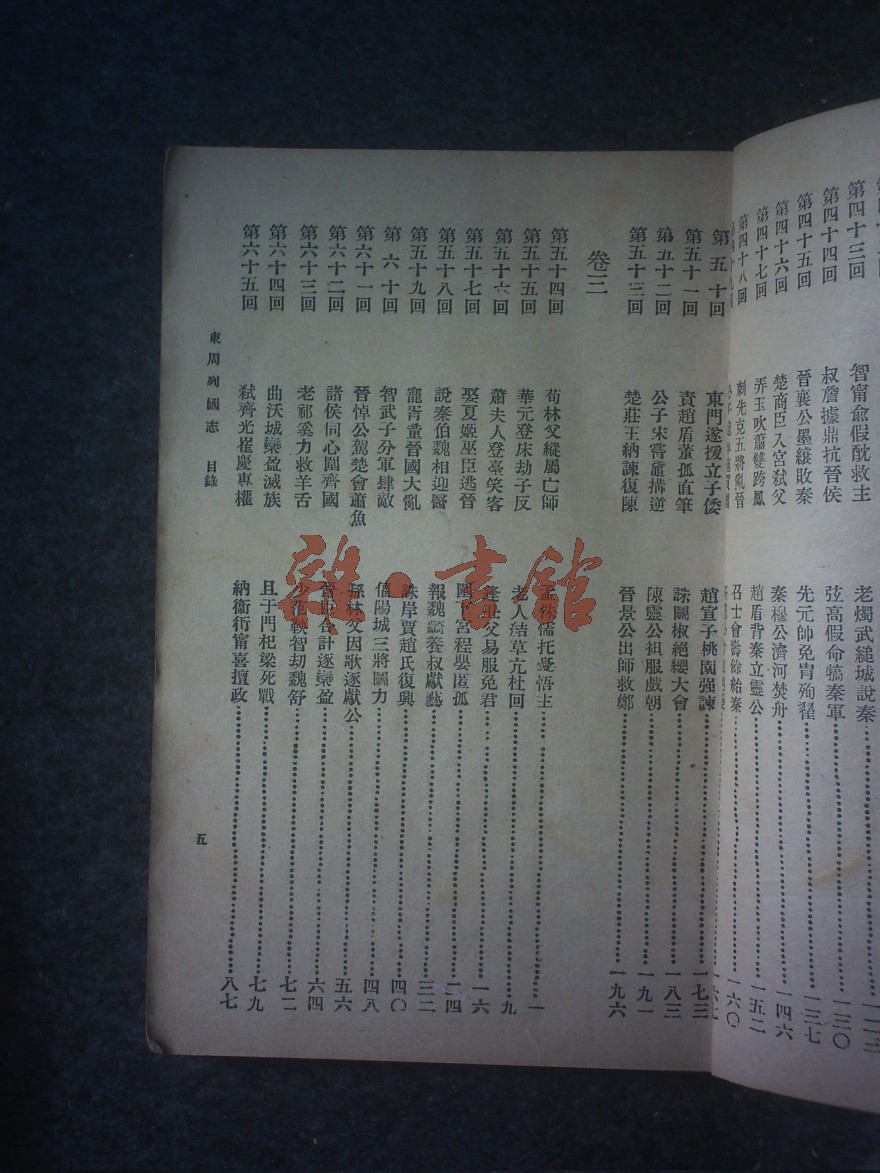 第四十三回 智甯俞假酖救主 老燭武縋城說秦
第四十四回 叔詹據鼎抗晉侯 弦高假命犒秦軍 一三〇
第四十五回 晉襄公墨縗敗秦 先元帥免冑殉翟 一三七
第四十六回 楚商臣入宮弒父 秦穆公濟河焚舟 一四六
第四十七回 弄玉吹簫雙跨鳳 趙盾背秦立靈公 一五二
第四十八回 刺先克五將亂晉 召士會壽餘紿秦 一六〇
第五十回 東門遂援立子倭 趙宣子桃園强諫 一七三
第五十一回 責趙盾董孤直筆 誅鬭椒絕纓大會 一八三
第五十二回 公子宋嘗黿搆逆 陳靈公袒服戲朝 一九一
第五十三回 楚莊王納諫復陳 晉景公出師救鄭 一九六
卷三
第五十四回 荀林父縱屬亡師 孟侏儒托優悟主 一
第五十五回 華元登床劫子反 老人結草亢杜回 九
第五十六回 蕭夫人登臺笑客 逢丑父易服免君 一六
第五十七回 娶夏姬巫臣逃晉 圍下宮程嬰匿孤 二四
第五十八回 說秦伯魏相迎醫 報魏錡養叔獻藝 三二
第五十九回 寵胥童晉國大亂 誅岸賈趙氏復興 四〇
第六十回 智武子分軍肆敵 偪陽城三將鬭力 四八
第六十一回 晉悼公駕楚會蕭魚 孫林父因歌逐獻公 五六
第六十二回 諸侯同心圍齊國 晉臣合計逐欒盈 六四
第六十三回 老祁奚力救羊舌 小范鞅智劫魏舒 七二
第六十四回 曲沃城欒盈滅族 且于門杞梁死戰 七九
第六十五回 弒齊光崔慶專權 納衞衎甯喜擅政 八七
東周列國志 目錄
五
雜·書館